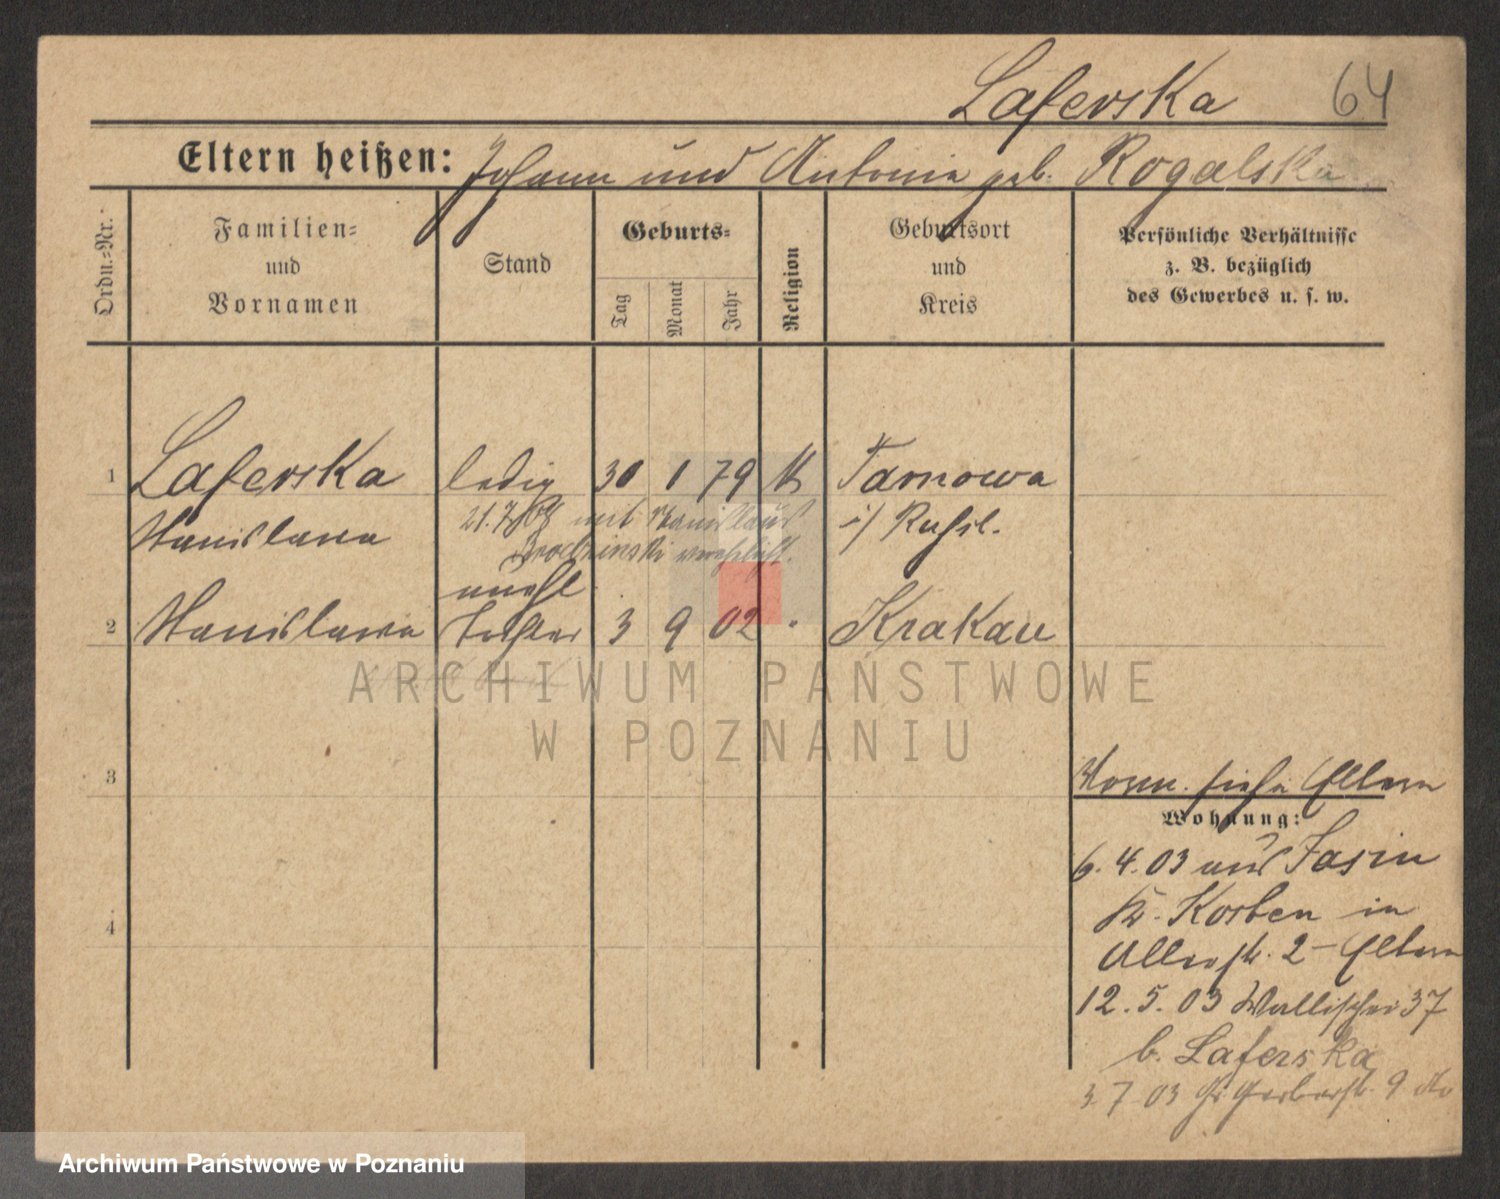 Laferska 64
Eltern heißen: Johann und Antonie geb. Rogalska
Ordn.-Nr.
Familien-
und
Vornamen
Stand
Geburts-
Tag
Monat
Jahr
Religion
Geburtsort
und
Kreis
Persönliche Verhältnisse
z. B. bezüglich
des Gewerbes u. s. w.
1 Laferska ledig 30 1 79 k Tarnowa
Stanislawa 21.7. mit Stanislaus i/ Rußl.
verehelicht.
unehl
2 Stanislawa Tochter 3 9 02 " Krakau
ARCHIWUM PAŃSTWOWE
W POZNANIU
3
4
Worm. siehe Eltern
Wohnung:
6. 4. 03 aus Jasin
Kr. Kosten in
2 - Eltern
12. 5. 03 Wallischei 37
b. Laferska
3. 7. 03 Gr Gerberstr. 9
Archiwum Państwowe w Poznaniu